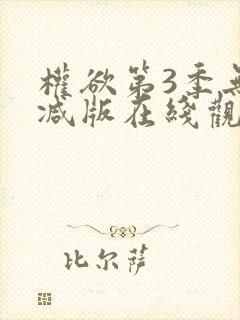 權欲第3季無
减版在綫觀
比尔萨